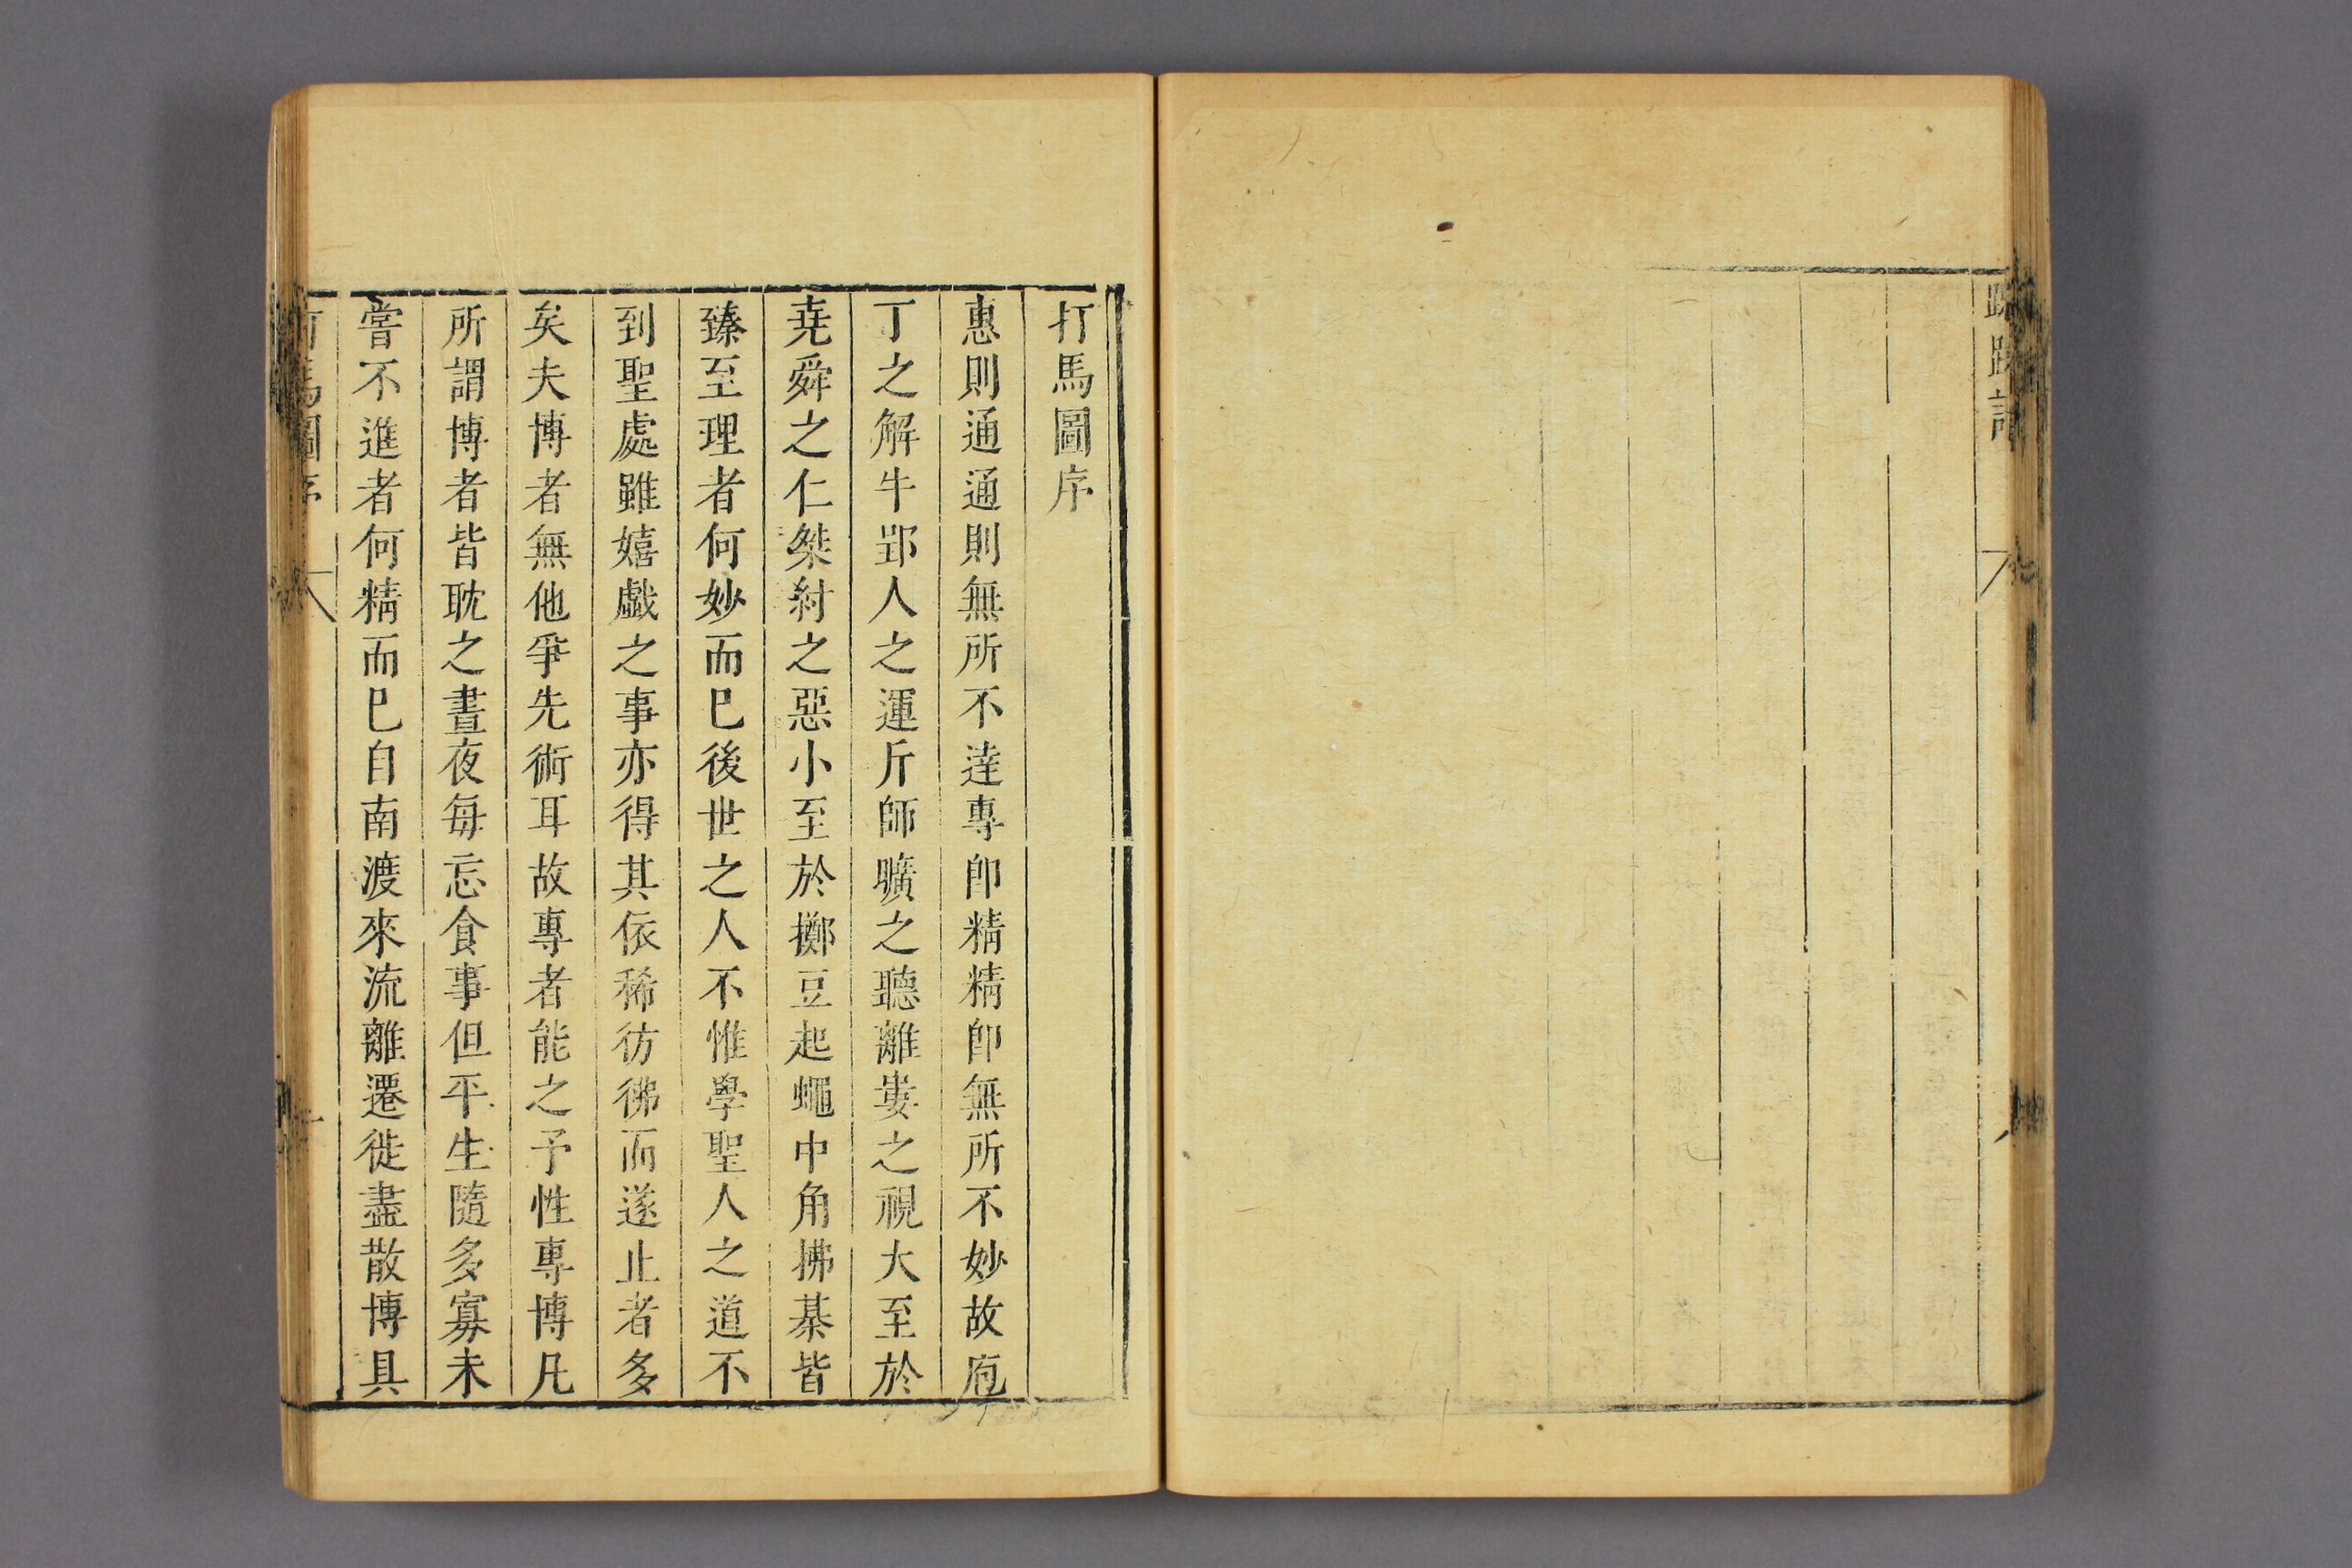 打馬圖序
惠則通通則無所不達專卽精精卽無所不妙故庖
丁之解牛郢人之運斤師曠之聽離婁之視大至於
堯舜之仁桀紂之惡小至於擲豆起蠅巾角拂棊皆
臻至理者何妙而巳後世之人不惟學聖人之道不
到聖處雖嬉戲之事亦得其依稀彷彿而遂止者多
矣夫博者無他爭先術耳故專者能之予性專博凡
所謂博者皆耽之晝夜每忘食事但平生隨多寡未
嘗不進者何精而巳自南渡來流離遷徙盡散博具
打馬圖序